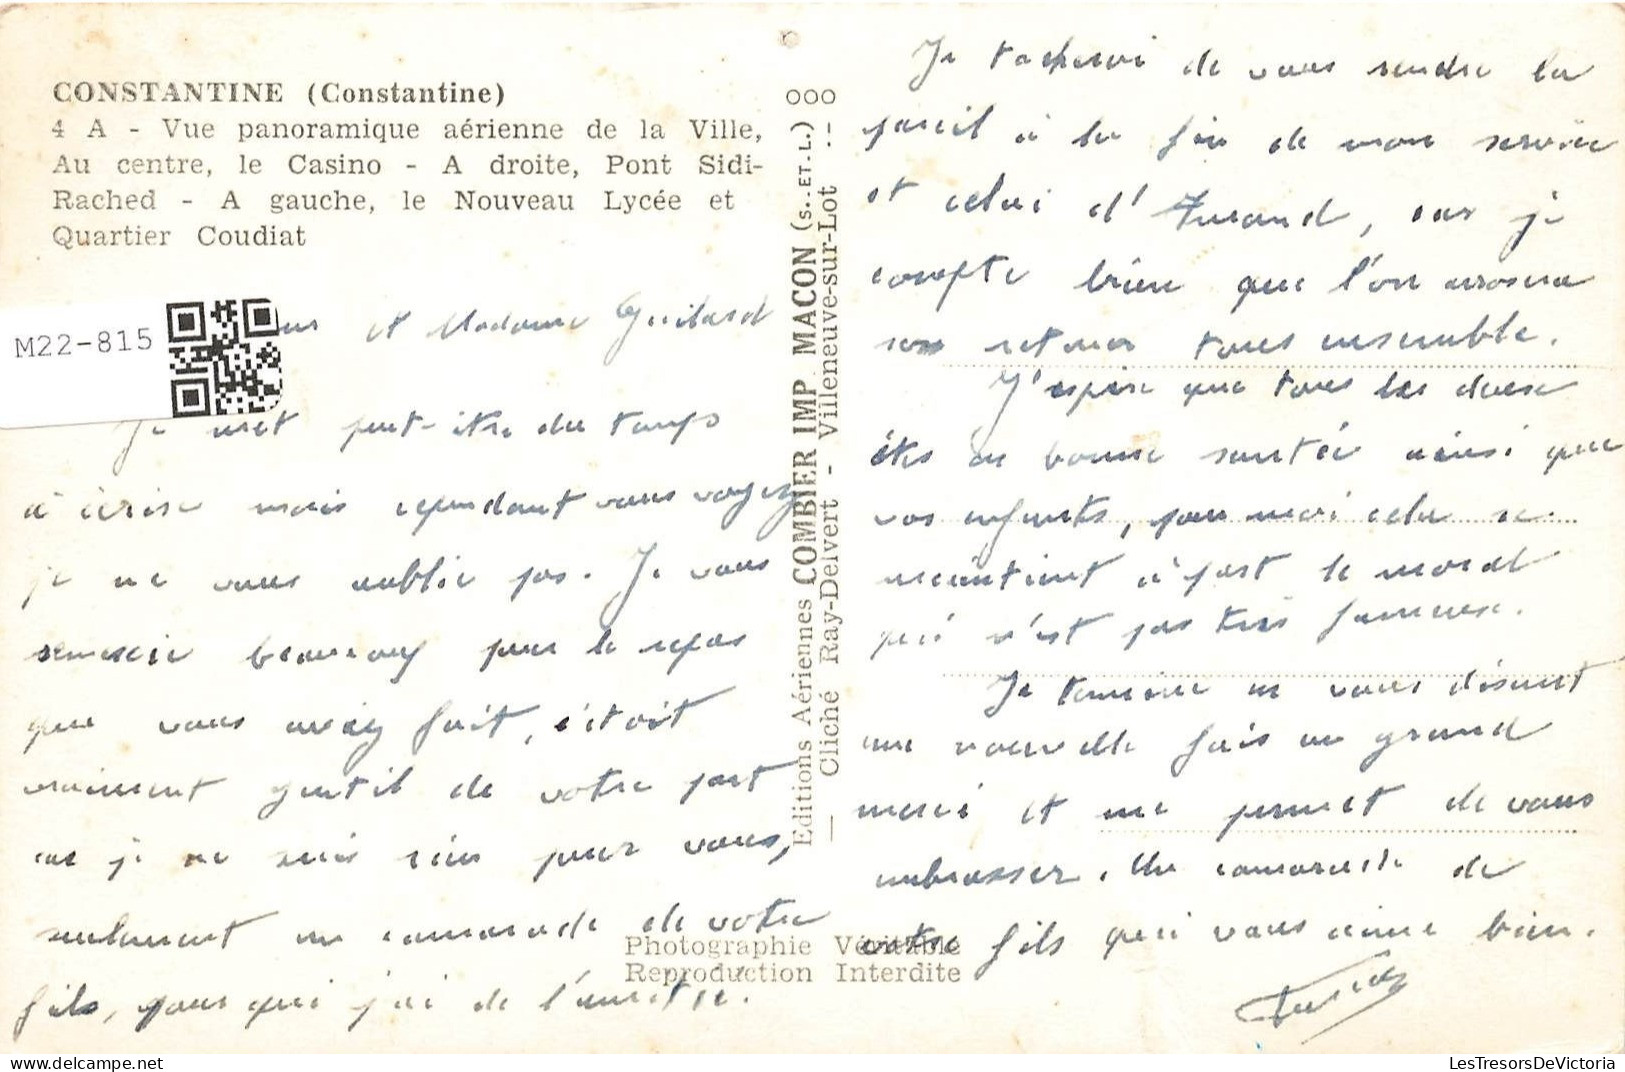 CONSTANTINE (Constantine)
4 A - Vue panoramique aérienne de la Ville,
Au centre, le Casino - A droite, Pont Sidi-
Rached - A gauche, le Nouveau Lycée et
Quartier Coudiat
M22-815
et Madame Guilard
Je met peut-être du temps
à écrire mais cependant vous voyez
je ne vous oublie pas. Je vous
remercie beaucoup pour le repas
que vous avez fait, c'était
vraiment gentil de votre part
car je ne suis rien pour vous,
seulement un camarade de votre
fils, pour qui j'ai de l'amitié.
OOO
Editions Aériennes COMBIER IMP MACON (S.-ET-L.)
— Cliché Ray-Delvert - Villeneuve-sur-Lot --
Photographie Véritable
Reproduction Interdite
Je tacherai de vous rendre la
pareil à la fin de mon service
et celui d'Amand, car je
compte bien que l'on arrosera
son retour tous ensemble.
J'espère que tous les deux
êtes en bonne santée ainsi que
vos enfants, pour moi cela se
maintient à part le moral
qui n'est pas très fameux.
Je termine en vous disant
une nouvelle fois un grand
merci et me permet de vous
embrasser. Un camarade de
votre fils qui vous aime bien.
LesTresorsDeVictoria